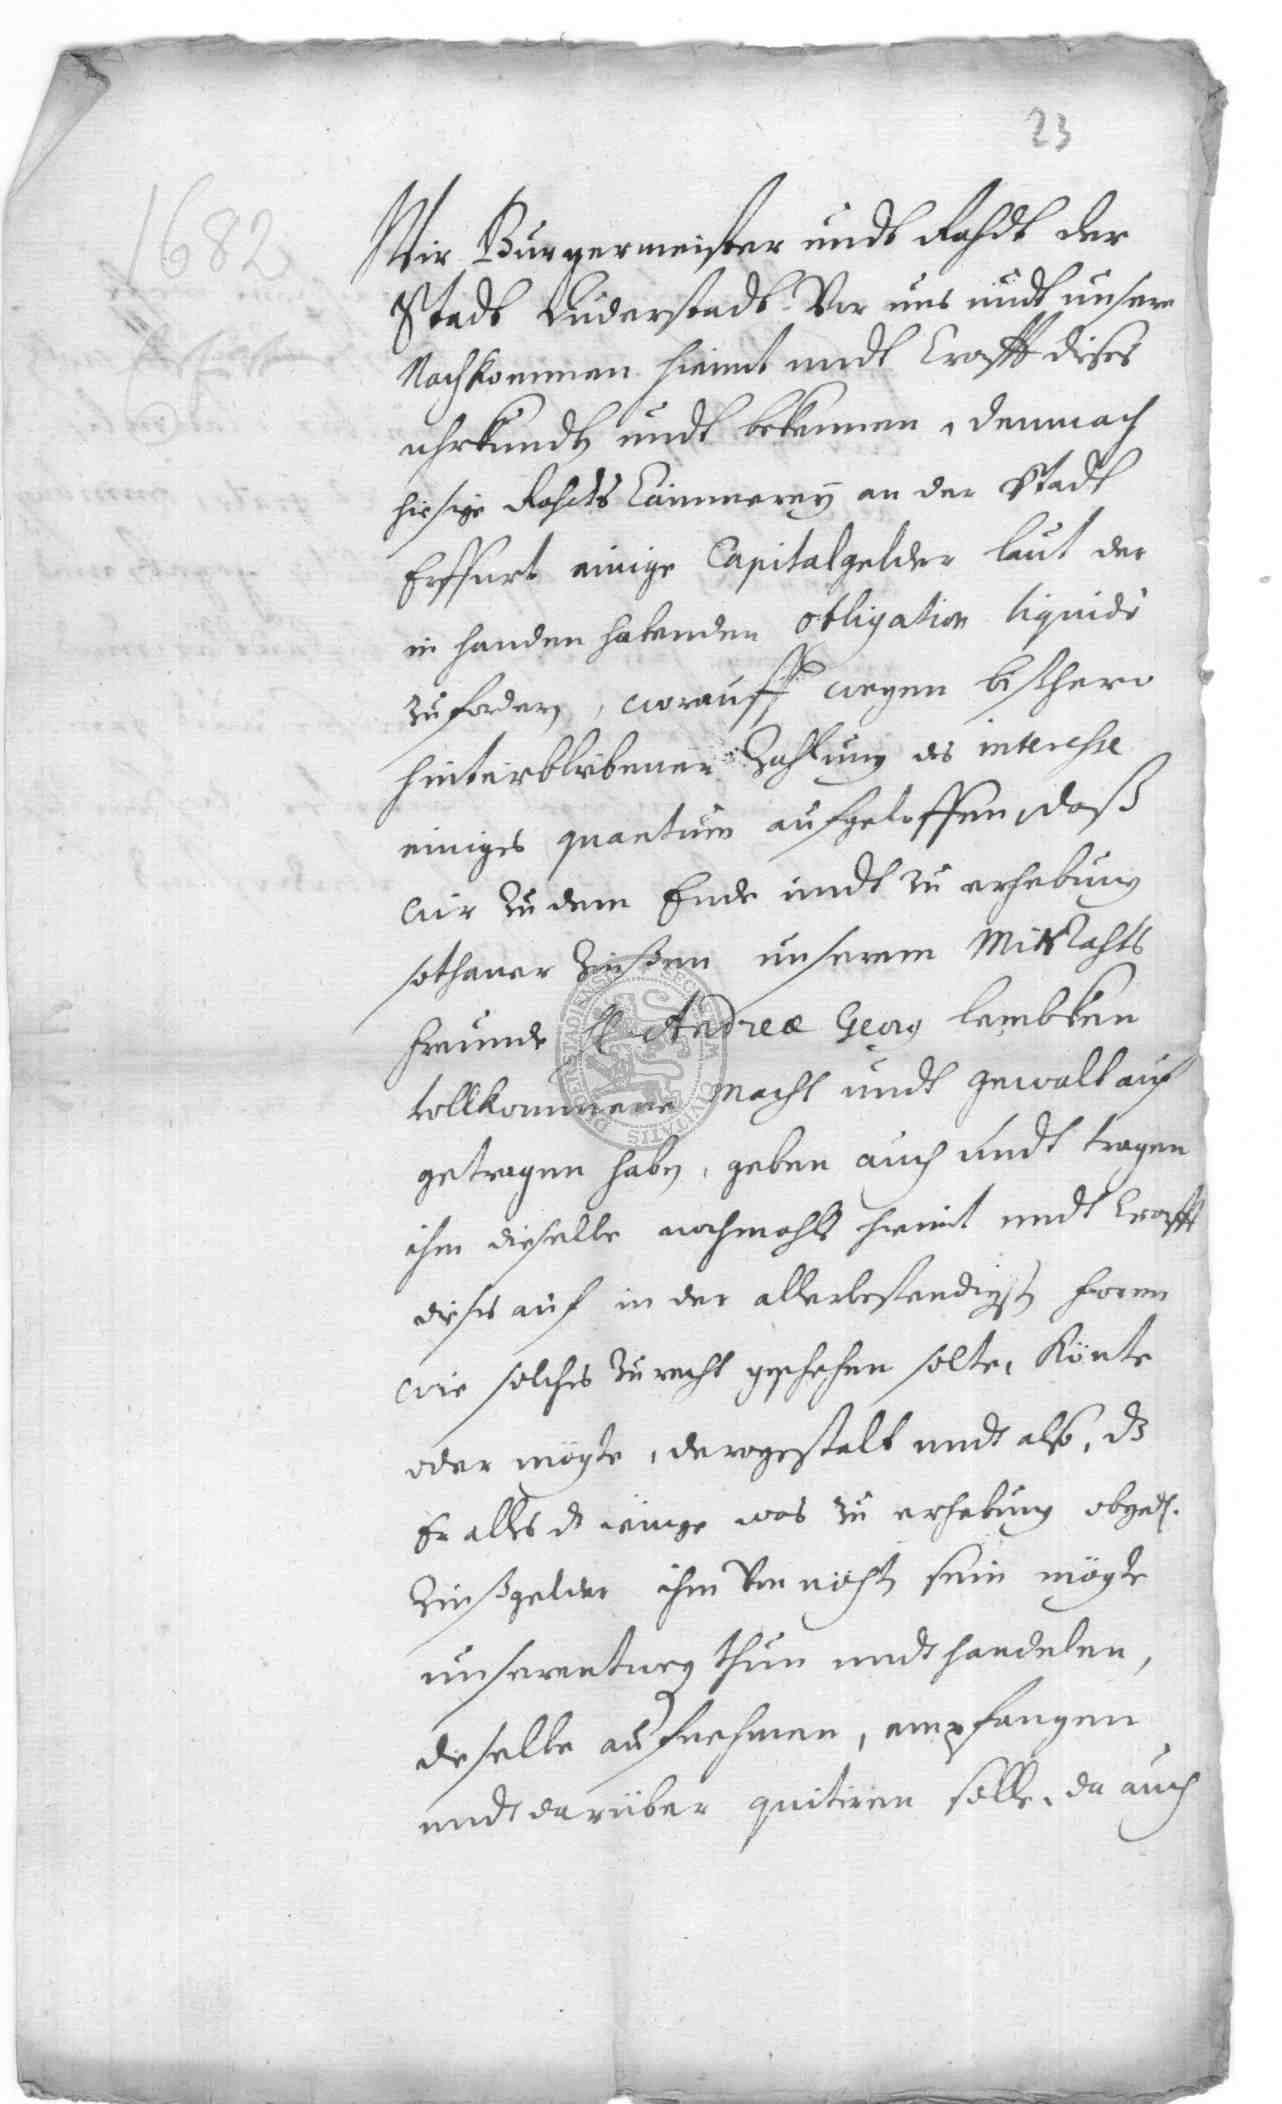 23
1682
Wir Burgermeister undt Rahdt der
Stadt Duderstadt Vor uns undt unsere
Nachkommen hiemit undt Crafft dieses
uhrkunden undt bekennen, demnach
hiesige Rahts Cämmerey an der Stadt
Erffurt einige Capitalgelder laut der
in handen habenden obligation liquide
zu fordern, worauff wegen bißhero
hinterbliebener Zahlung des interesse
einiges quantum aufgeloffen, daß
wir zu dem Ende undt zu erhebung
sothaner Zinßen unserem Mit Rahts
freunde H. Andreæ Georg Lembken
vollkommene Macht undt gewalt auf
getragen haben, geben auch undt tragen
ihm dieselbe nochmahls hiemit undt Crafft
dieses auf in der allerbestendigsten form
wie solches zu recht geschehen solte, könte
oder mögte, derogestalt undt also, dz
Er alles dz ienige was zu erhebung obged.
Zinßgelder ihm von nöhten sein mögte
unserentweg thun undt handelen,
dieselbe aufnehmen, empfangen
undt darüber quitiren solle, da auch
SECRETUM CIVITATIS DUDERSTADIENSIS